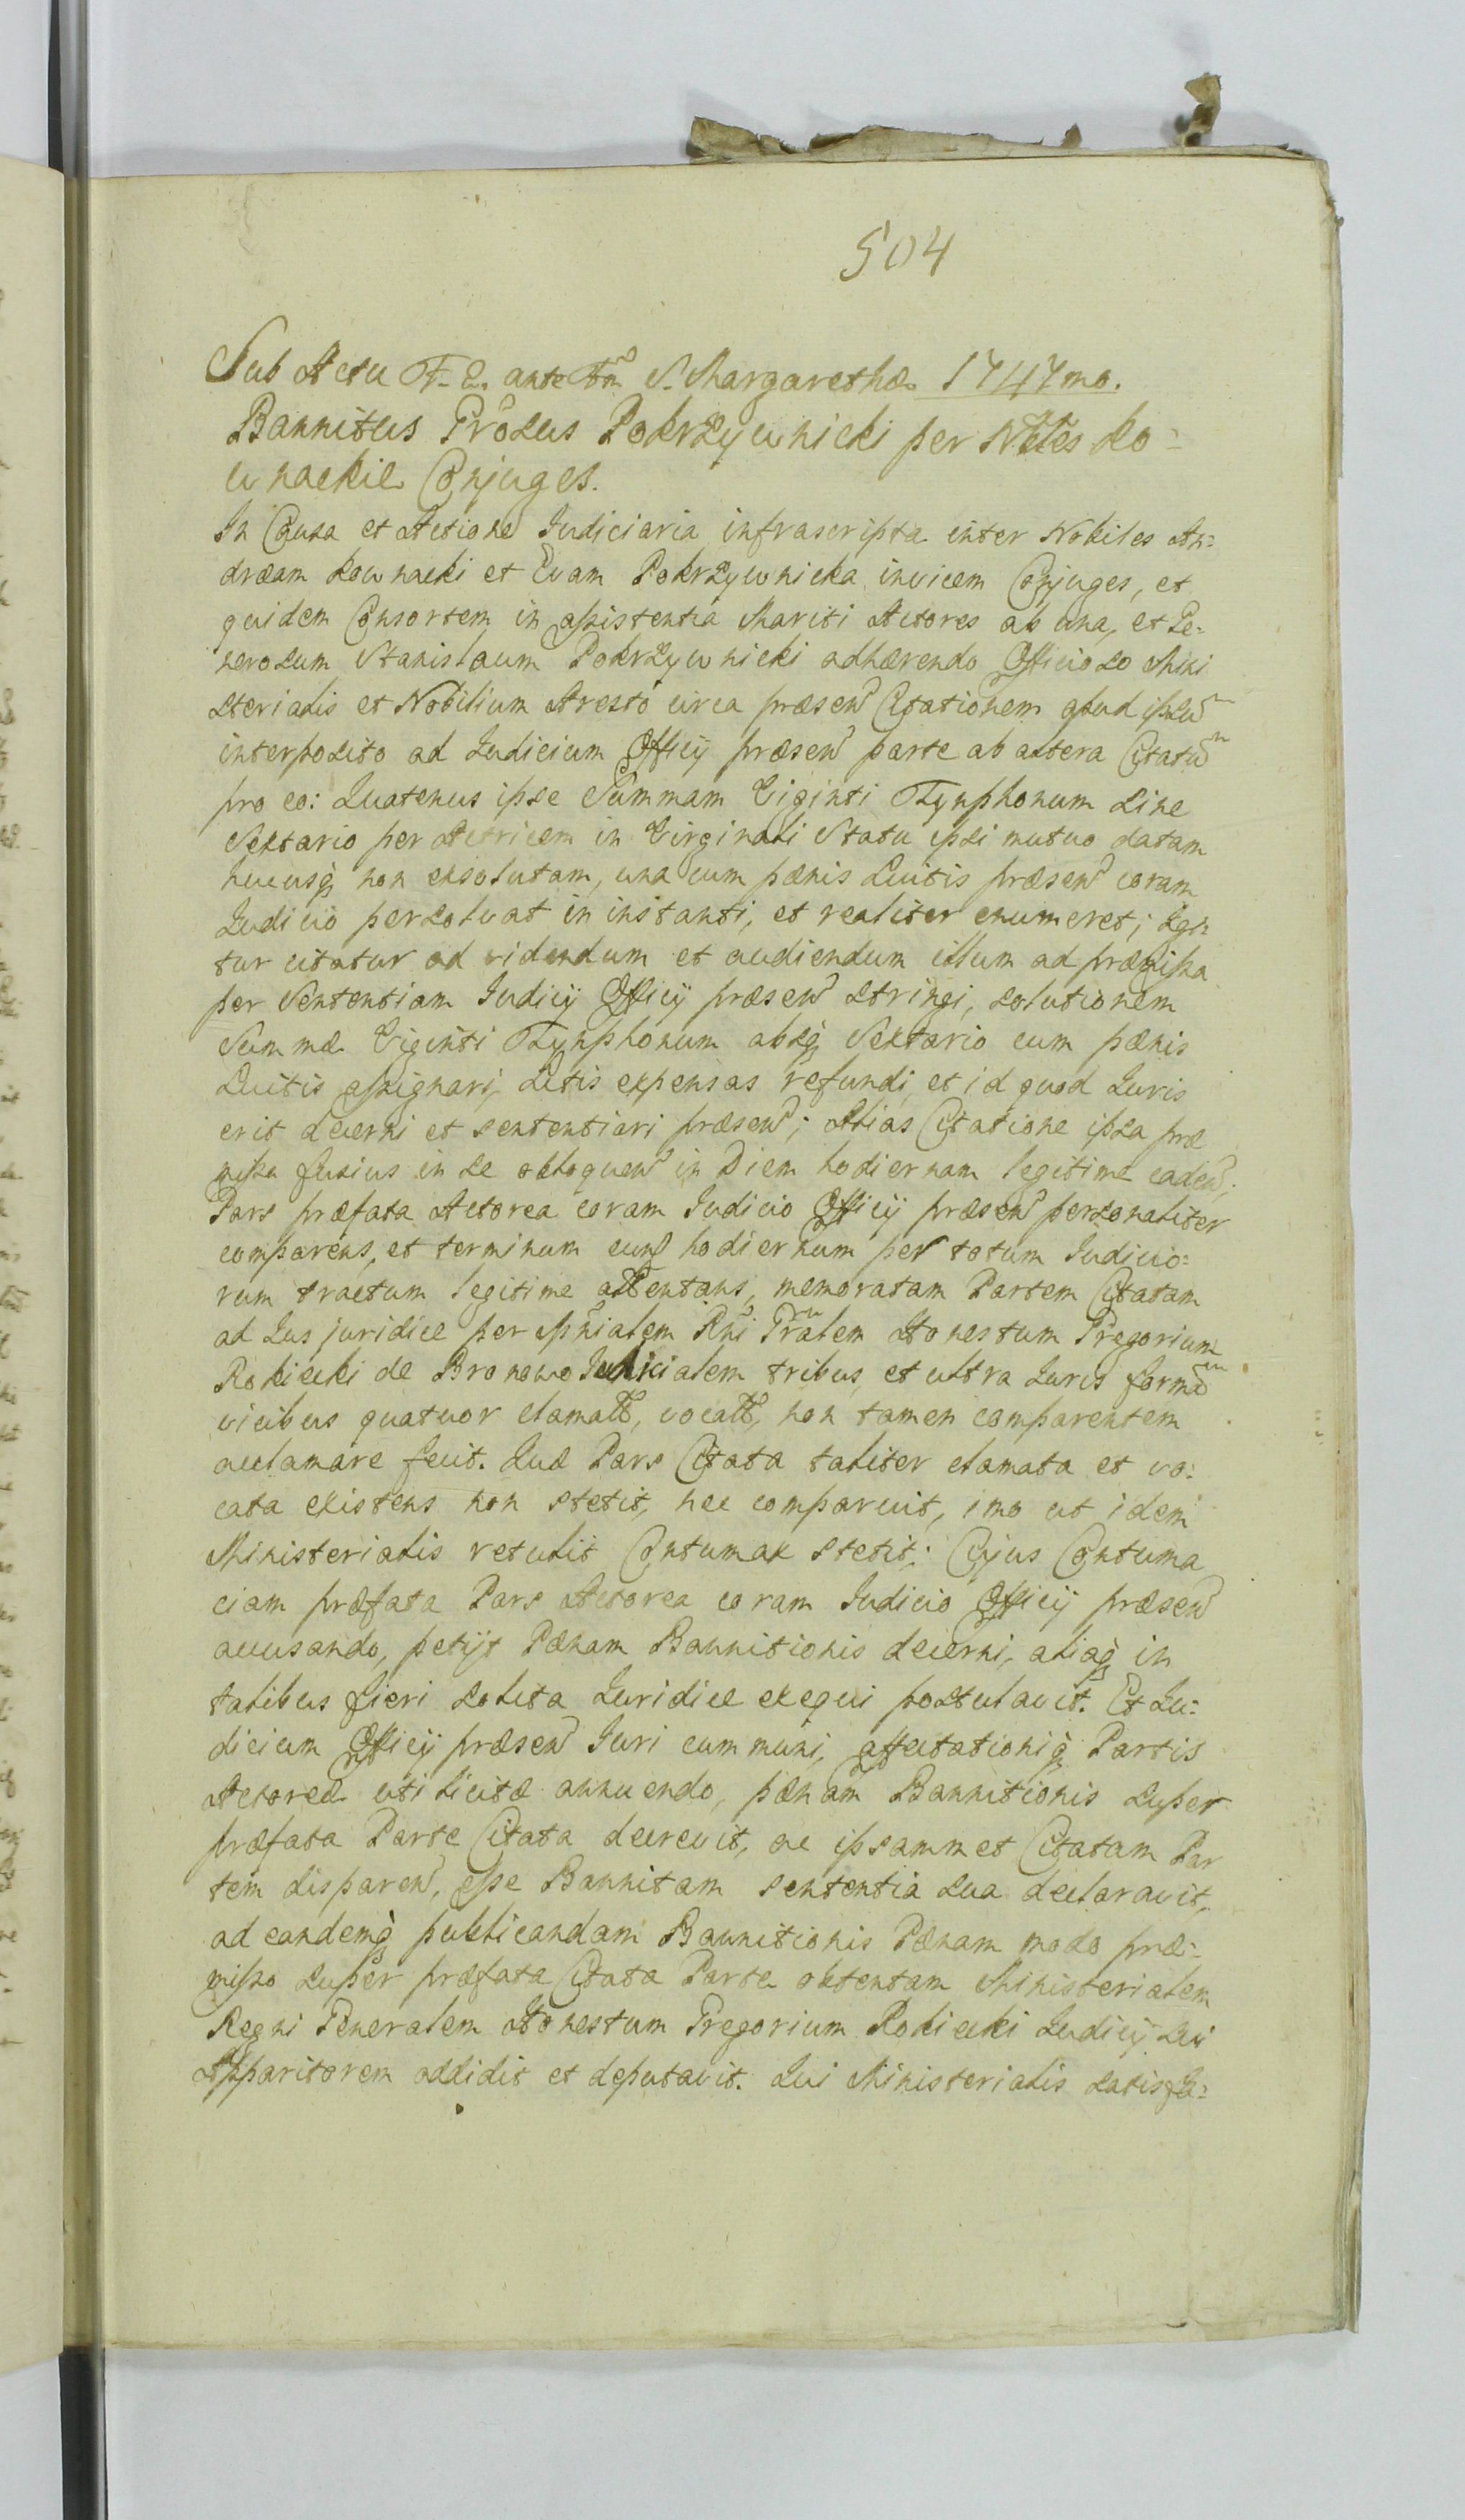 504
Sub Actu F. 2. ante Fm̃ S. Margarethæ 1747mo.
Bannitus Grõsus Pokrzywnicki per Nbĩles Ko=
wnackie Conjuges.
In Causa et Actione Judiciaria infrascripta inter Nobiles An=
dræam Kownacki et Evam Pokrzywnicka invicem Conjuges, et
quidem Consortem in assistentia Mariti Actores ab una, et Ge=
nerosum Stanislaum Pokrzywnicki adhærendo Officioso Mini
sterialis et Nobilium Aresto circa præsen Citationem apud ipsum
interposito ad Judicium Officij præsen parte ab altera Citatum
pro eo: Quatenus ipse Summam Viginti Tynphonum sine
Sextario per Actricem in Virginali Statu ipsi mutuo datam
hucusq; non exsolutam, una cum pænis Luitis præsen coram
Judicio persolvat in instanti, et realiter enumeret; Igi=
tur citatur ad videndum et audiendum illum ad præmissa
per Sententiam Judicij Officij præsen stringi, solutionem
Summæ Viginti Tynphonum absq; Sextario cum pænis
Luitis assignari, Litis expensas refundi, et id quod Juris
erit decerni et sententiari præsen; Alias Citatione ipsa præ
missa fusius in se obloquen in Diem hodiernam legitime caden;
Pars præfata Actorea coram Judicio Officij præsen personaliter
comparens, et terminum eund hodiernum per totum Judicio=
rum tractum legitime attentans, memoratam Partem Citatam
ad Jus juridice per Mñialem Rñi Gñralem Honestum Gregorium
Rokicki de Bronowo Judicialem tribus, et ultra Juris formam
vicibus quatuor clamatt, vocatt, non tamen comparentem
acclamare fecit. Quæ Pars Citata taliter clamata et vo=
cata existens non stetit, nec comparuit, imo ut idem
Ministerialis retulit Contumax stetit: Cujus Contuma
ciam præfata Pars Actorea coram Judicio Officij præsen
accusando, petijt Pænam Bannitionis decerni, aliaq; in
talibus fieri solita Juridice exequi postulavit. Et Ju=
dicium Officij præsen Juri communi, affectationiq; Partis
Actoreæ uti licitæ annuendo, pænam Bannitionis super
præfata Parte Citata decrevit, ac ipsammet Citatam Par
tem disparen, esse Bannitam sententia sua declaravit,
ad eandemq; publicandam Bannitionis Pænam modo præ=
misso super præfata Citata Parte obtentam Ministerialem
Regni Generalem Honestum Gregorium Rokicki Judicij sui
Apparitorem addidit et deputavit. Qui Ministerialis satisfa=